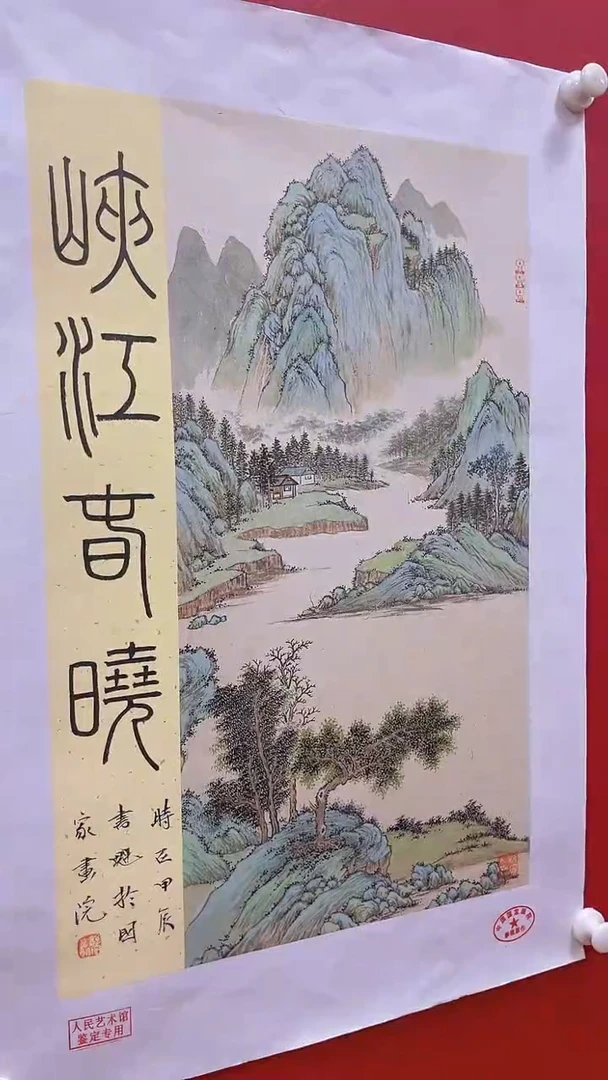 峡江春曉
時在甲辰
書題於國
家畫院
人民艺术馆
鉴定专用